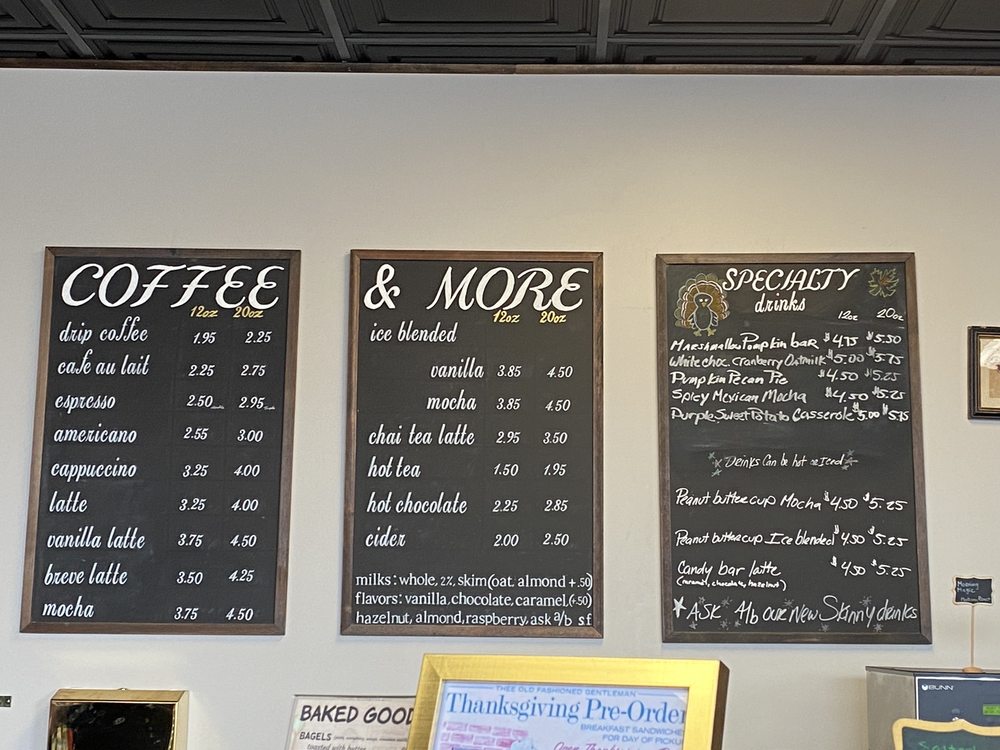 COFFEE
12oz 20oz
drip coffee 1.95 2.25
cafe au lait 2.25 2.75
espresso 2.50 2.95
americano 2.55 3.00
cappuccino 3.25 4.00
latte 3.25 4.00
vanilla latte 3.75 4.50
breve latte 3.50 4.25
mocha 3.75 4.50
& MORE
12oz 20oz
ice blended
vanilla 3.85 4.50
mocha 3.85 4.50
chai tea latte 2.95 3.50
hot tea 1.50 1.95
hot chocolate 2.25 2.85
cider 2.00 2.50
milks: whole, 2%, skim(oat. almond +.50)
flavors: vanilla, chocolate, caramel,(+.50)
hazelnut, almond, raspberry, ask a/b s.f
SPECIALTY
drinks
12oz 20oz
Marshmallow Pumpkin bar $4.75 $5.50
White choc. Cranberry Oatmilk $5.00 $5.75
Pumpkin Pecan Pie $4.50 $5.25
Spicy Mexican Mocha $4.50 $5.25
Purple Sweet Potato Casserole $5.00 $5.75
Drinks Can be hot or Iced
Peanut butter cup Mocha $4.50 $5.25
Peanut butter cup Ice blended $4.50 $5.25
Candy bar latte $4.50 $5.25
(caramel, chocolate, hazelnut)
ASK A/b our New Skinny drinks
Morning
Magic
BUNN
BAKED GOOD
BAGELS
toasted with butter
THEE OLD FASHIONED GENTLEMAN
Thanksgiving Pre-Order
BREAKFAST SANDWICHE
FOR DAY OF PICKU